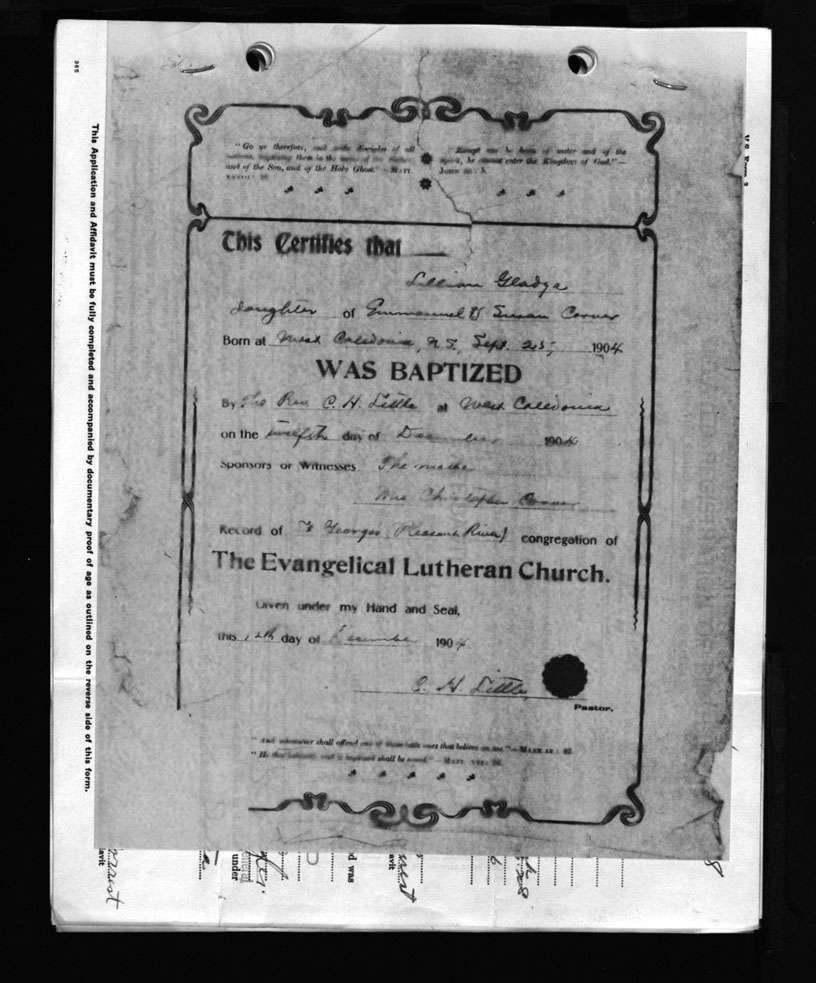 365
This Application and Affidavit must be fully completed and accompanied by documentary proof of age as outlined on the reverse side of this form.
"Go ye therefore, and make disciples of all
nations, baptizing them in the name of the Father
and of the Son, and of the Holy Ghost."—MATT.
"Except one be born of water and of the
Spirit, he cannot enter the Kingdom of God."—
JOHN
This Certifies that
Lillian Gladys
daughter of Emmanuel & Susan Conrad
Born at West Caledonia, N.S., Sept. 25, 1904
WAS BAPTIZED
By The Rev C. H. Little at West Caledonia
on the twelfth day of December 1904
Sponsors or Witnesses The mother
Mrs Christopher
Record of St Georges (Pleasant River) congregation of
The Evangelical Lutheran Church.
Given under my Hand and Seal,
this 12th day of December 1904
C. H. Little
Pastor.
"And whosoever shall offend one of these little ones that believe on me."—MARK
"He that believeth and is baptized shall be saved."
under
d was